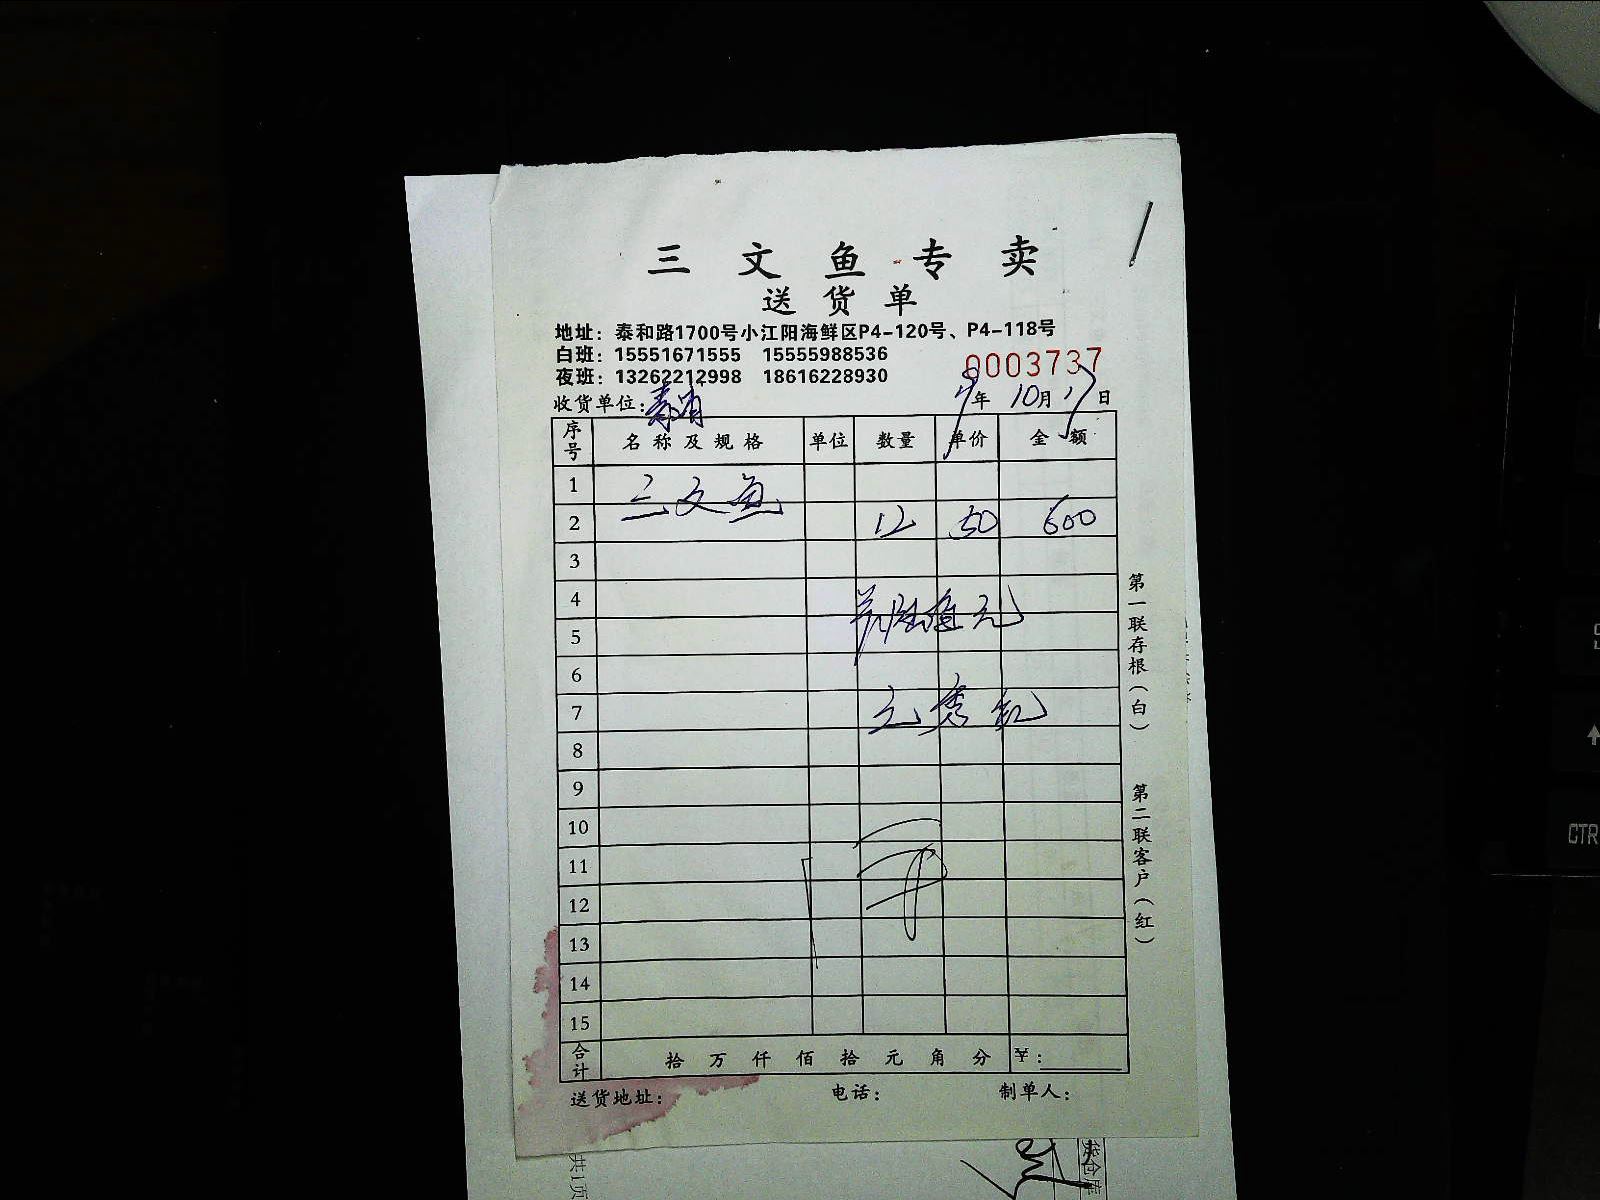 三文鱼专卖
送货单
地址：泰和路1700号小江阳海鲜区P4-120号、P4-118号
白班：15551671555 15555988536
夜班：13262212998 18616228930
0003737
收货单位： 年10月17日
序号 名称及规格 单位 数量 单价 金额
1 三文鱼
2 12 50 600
3
4
5
6
7
8
9
10
11
12
13
14
15
合计 拾万仟佰拾元角分 ￥：
送货地址： 电话： 制单人：
第一联存根（白）
第二联客户（红）
共1页
CTR